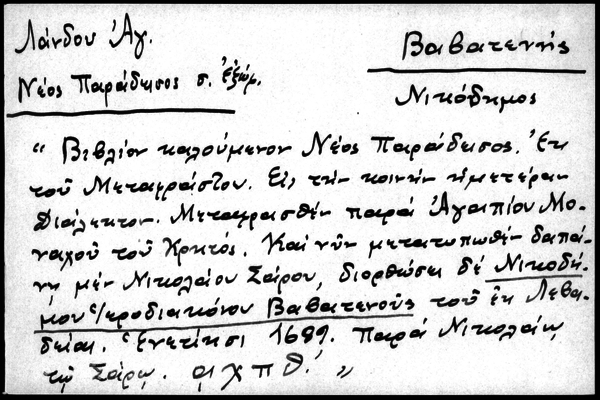 Λάνδου Ἀγ.
Νέος Παράδεισος σ. ἐξώφ.
Βαβατενῆς
Νικόδημος
“ Βιβλίον καλούμενον Νέος Παράδεισος. Ἐκ
τοῦ Μεταφράστου. Εἰς τὴν κοινὴν ἡμετέραν
Διάλεκτον. Μεταφρασθὲν παρὰ Ἀγαπίου Μο-
ναχοῦ τοῦ Κρητός. Καὶ νῦν μετατυπωθὲν δαπά-
νῃ μὲν Νικολάου Σάρου, διορθώσει δὲ Νικοδή-
μου Ἱεροδιακόνου Βαβατενοῦς τοῦ ἐκ Λεβα-
δείας. Ἐνετίησι 1689. Παρὰ Νικολάῳ
τῷ Σάρῳ. αχπθ΄. ”